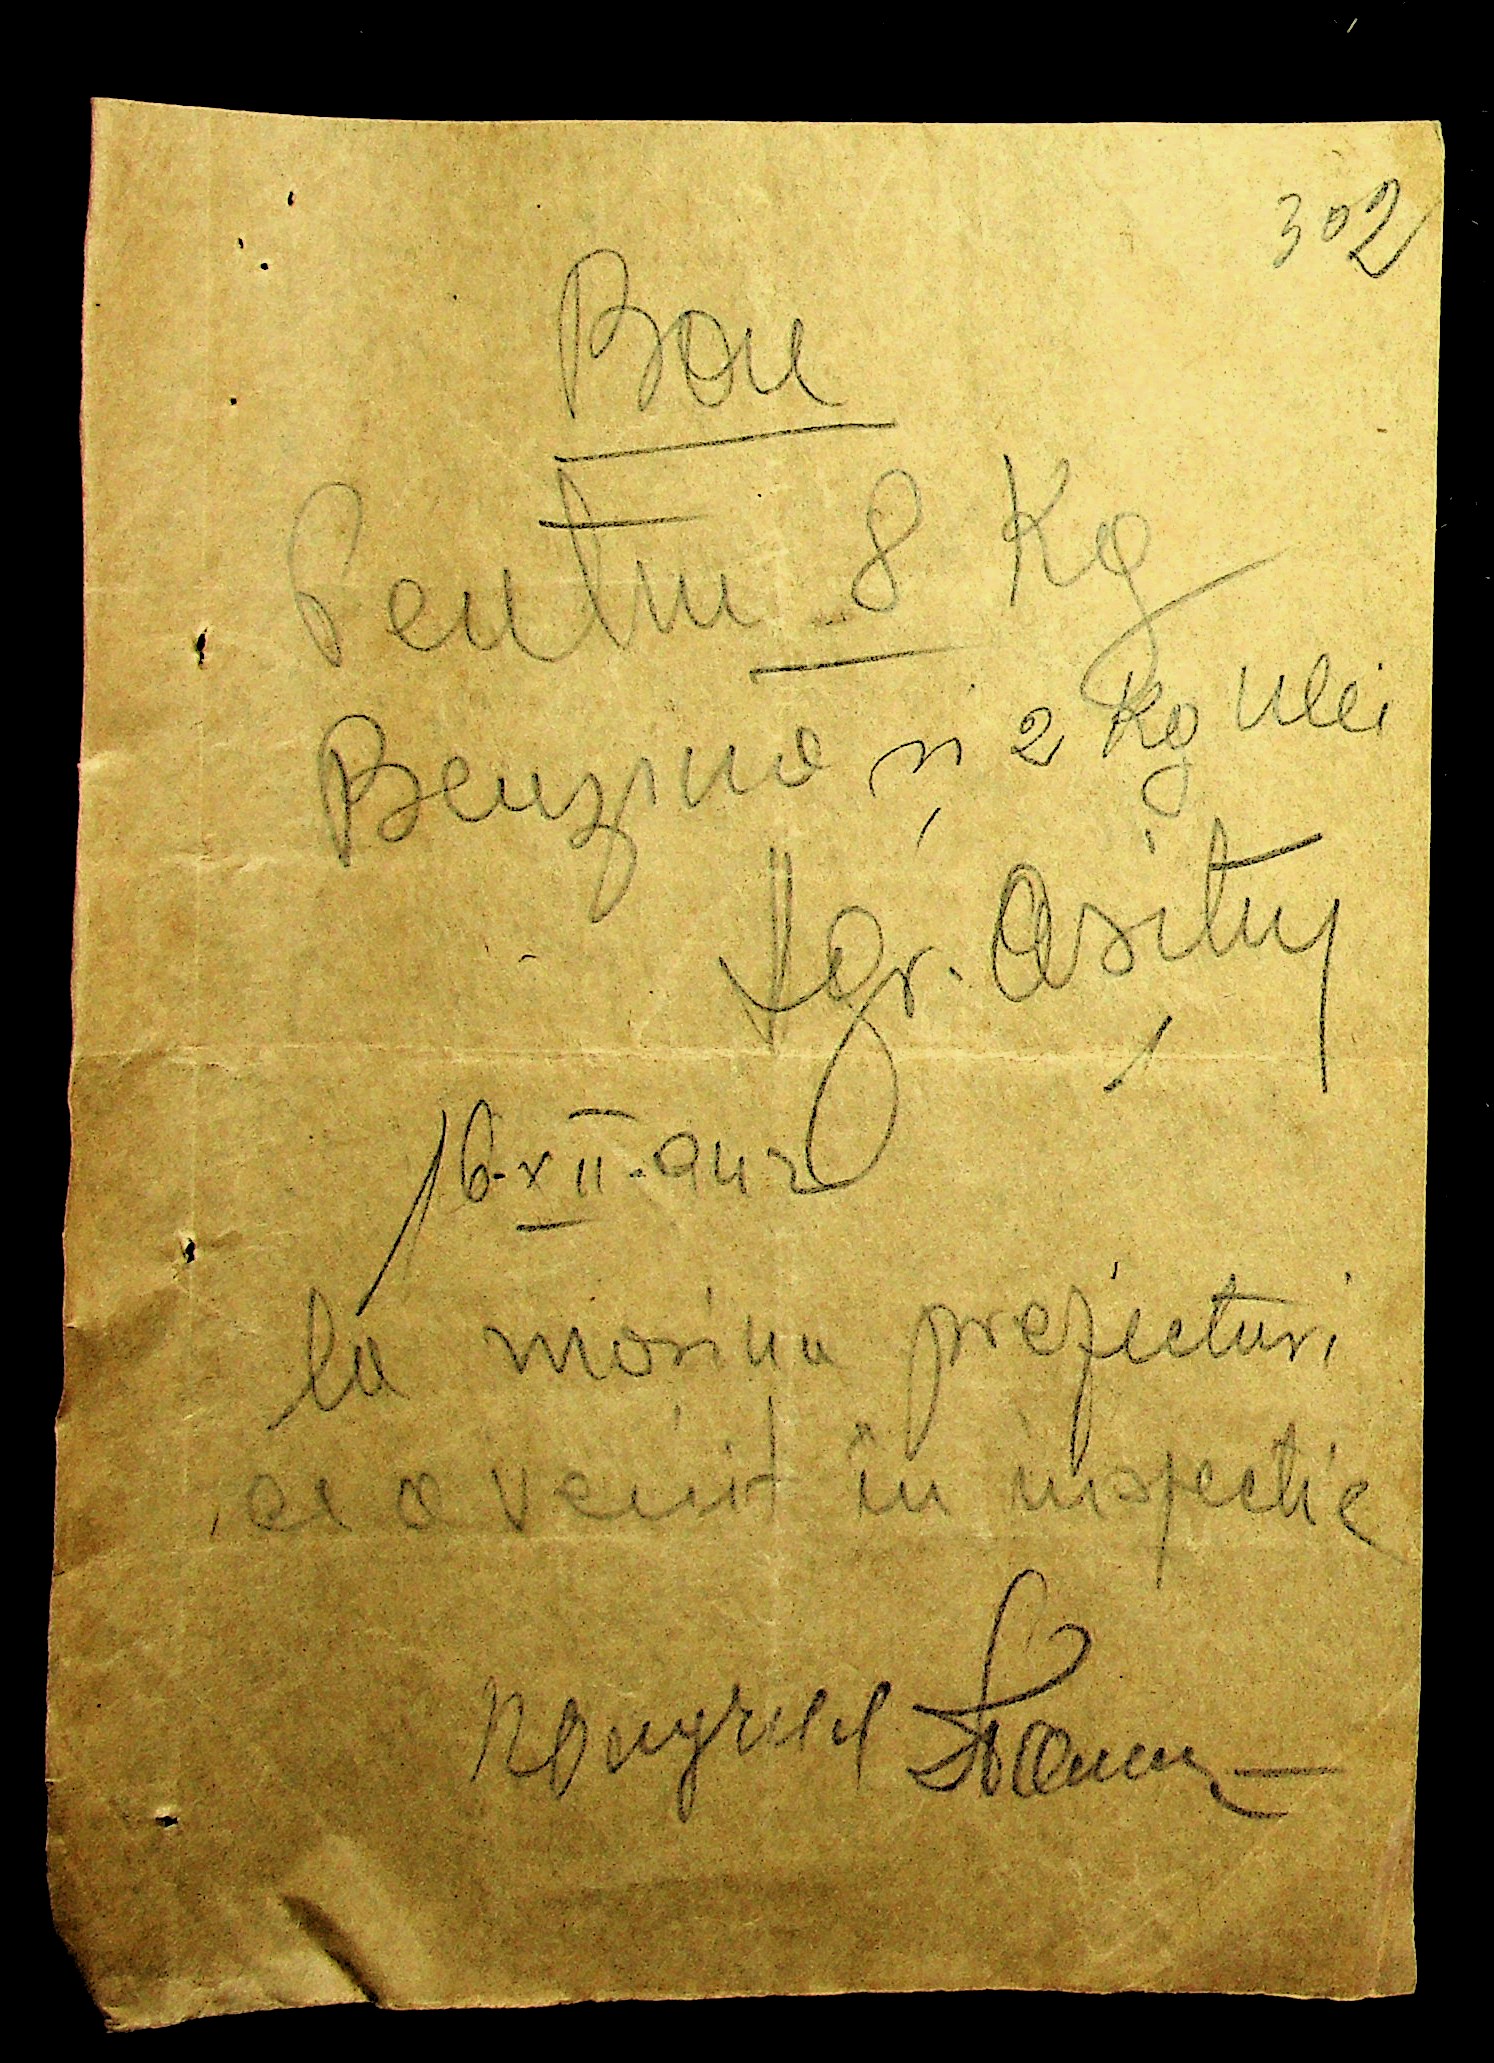 302
Bon
Pentru 8 Kg
Benzina și 2 Kg ulei
Agr.
16-XII-942
la mosina prefecturi
ce a venit în inspectie